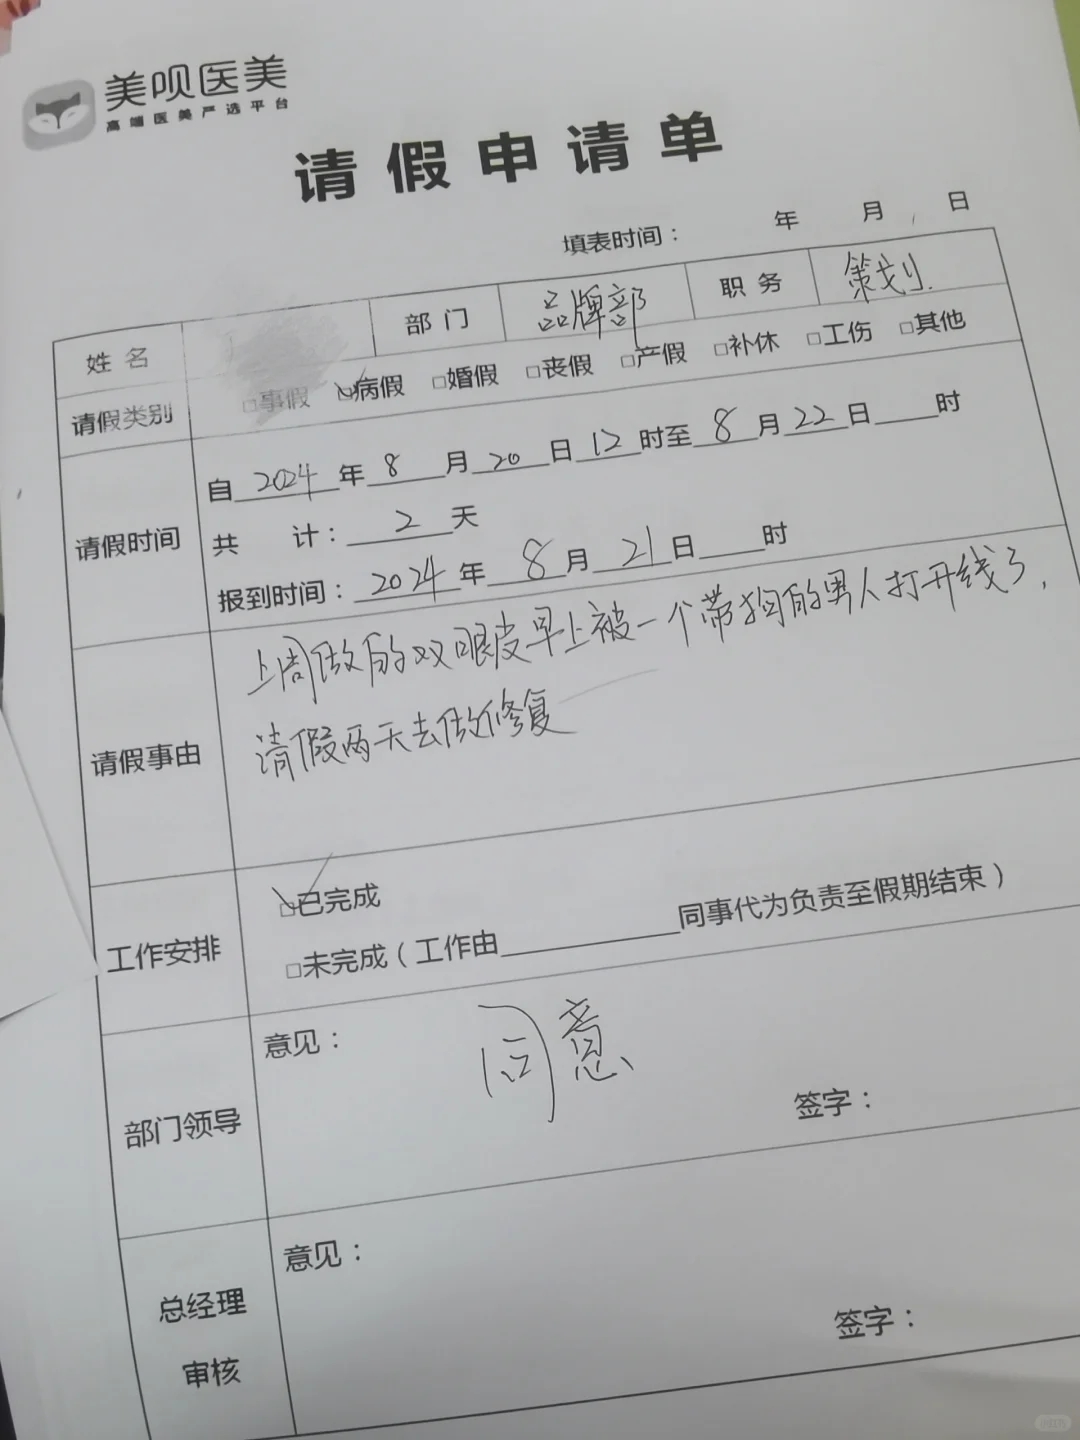 美呗医美
高端医美严选平台
请假申请单
填表时间： 年 月 日
姓名 部门 品牌部 职务 策划.
请假类别 □事假 ☑病假 □婚假 □丧假 □产假 □补休 □工伤 □其他
请假时间
自 2024 年 8 月 20 日 12 时至 8 月 22 日____时
共 计： 2 天
报到时间： 2024 年 8 月 21 日____时
请假事由
上周做的双眼皮早上被一个带狗的男人打开线了，
请假两天去做修复
工作安排
☑已完成
□未完成（工作由__________同事代为负责至假期结束）
部门领导
意见： 同意
签字：
总经理
审核
意见：
签字：